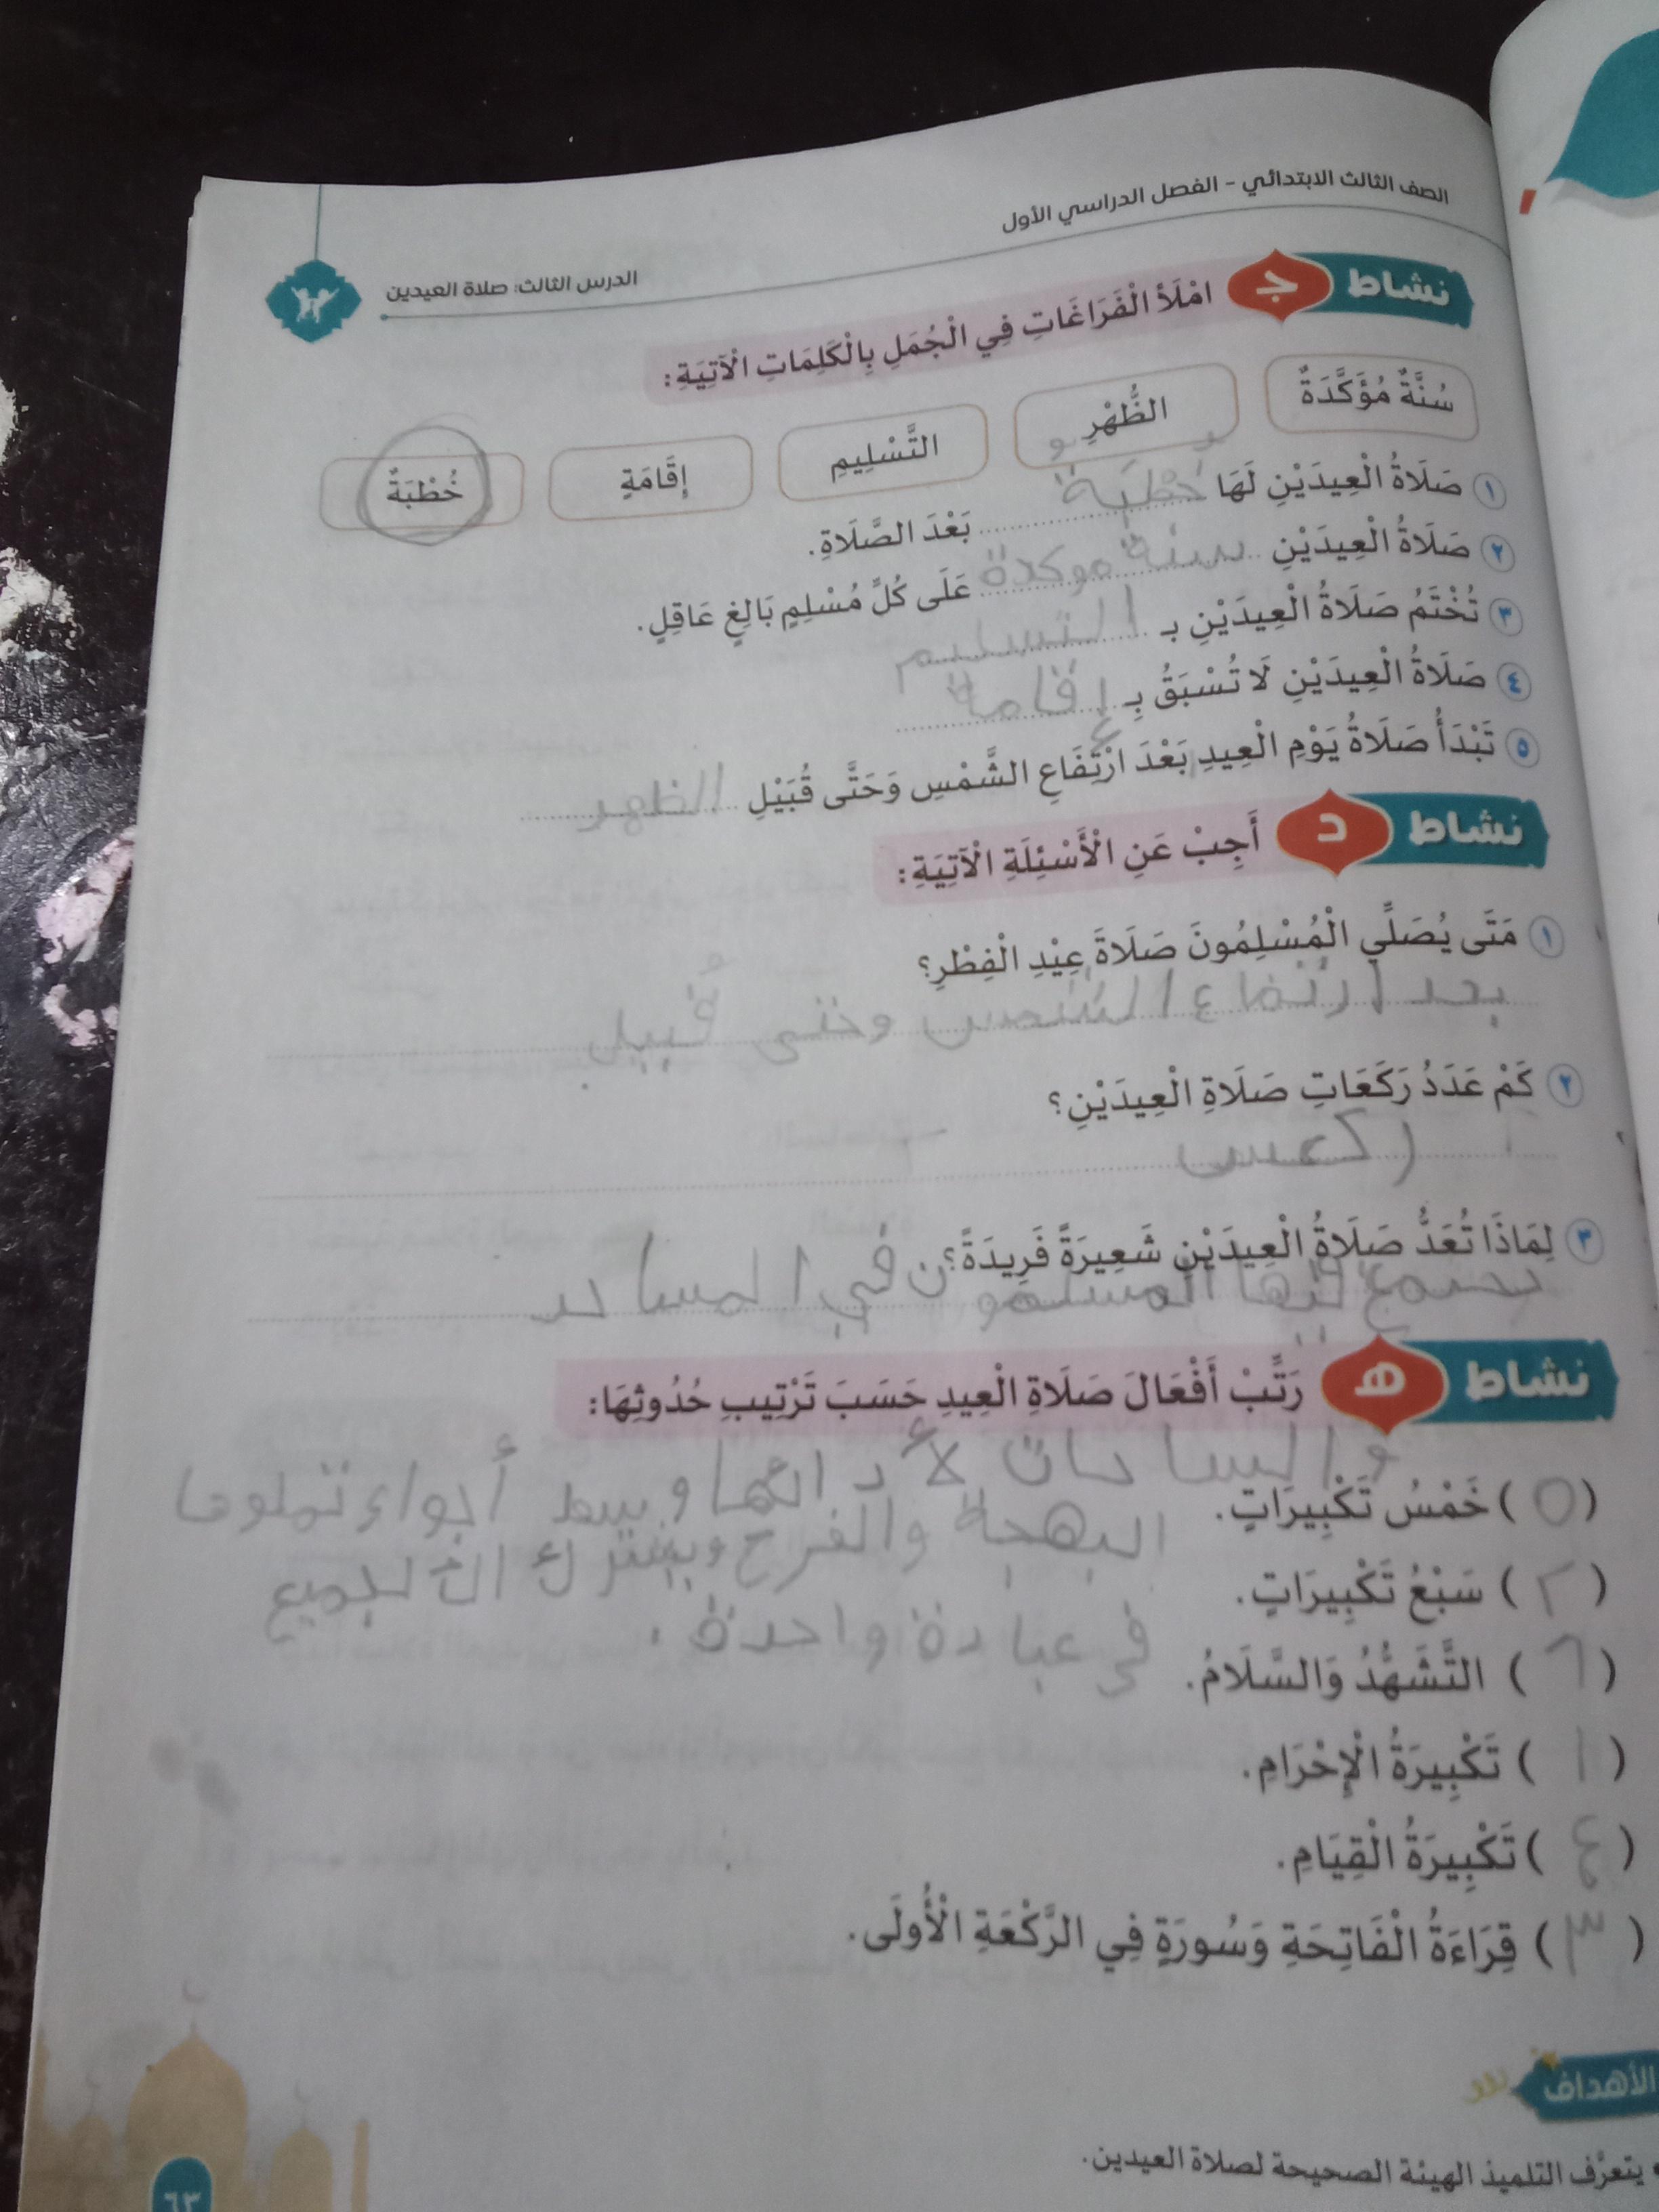 الصف الثالث الابتدائي - الفصل الدراسي الأول
الدرس الثالث: صلاة العيدين
نشاط ج امْلَأِ الْفَرَاغَاتِ فِي الْجُمَلِ بِالْكَلِمَاتِ الْآتِيَةِ:
سُنَّةٌ مُؤَكَّدَةٌ الظُّهْرِ التَّسْلِيمِ إِقَامَةٍ خُطْبَةٌ
١ صَلَاةُ الْعِيدَيْنِ لَهَا خطبة بَعْدَ الصَّلَاةِ.
٢ صَلَاةُ الْعِيدَيْنِ سنة موكدة عَلَى كُلِّ مُسْلِمٍ بَالِغٍ عَاقِلٍ.
٣ تُخْتَمُ صَلَاةُ الْعِيدَيْنِ بـ التسليم
٤ صَلَاةُ الْعِيدَيْنِ لَا تُسْبَقُ بِـ إقامة
٥ تَبْدَأُ صَلَاةُ يَوْمِ الْعِيدِ بَعْدَ ارْتِفَاعِ الشَّمْسِ وَحَتَّى قُبَيْلِ الظهر
نشاط د أَجِبْ عَنِ الْأَسْئِلَةِ الْآتِيَةِ:
١ مَتَى يُصَلِّي الْمُسْلِمُونَ صَلَاةَ عِيْدِ الْفِطْرِ؟
بعد ارتفاع الشمس وحتى قُبيل
٢ كَمْ عَدَدُ رَكَعَاتِ صَلَاةِ الْعِيدَيْنِ؟
٣ لِمَاذَا تُعَدُّ صَلَاةُ الْعِيدَيْنِ شَعِيرَةً فَرِيدَةً؟
فيها المسلمون في
نشاط هـ رَتِّبْ أَفْعَالَ صَلَاةِ الْعِيدِ حَسَبَ تَرْتِيبِ حُدُوثِهَا:
(٥) خَمْسُ تَكْبِيرَاتٍ.
البهجة والفرح
(٢) سَبْعُ تَكْبِيرَاتٍ.
في عبادة واحدة.
(٦) التَّشَهُّدُ وَالسَّلَامُ.
(١) تَكْبِيرَةُ الْإِحْرَامِ.
(٤) تَكْبِيرَةُ الْقِيَامِ.
(٣) قِرَاءَةُ الْفَاتِحَةِ وَسُورَةٍ فِي الرَّكْعَةِ الْأُولَى.
الأهداف
• يتعرَّف التلميذ الهيئة الصحيحة لصلاة العيدين.
٦٣